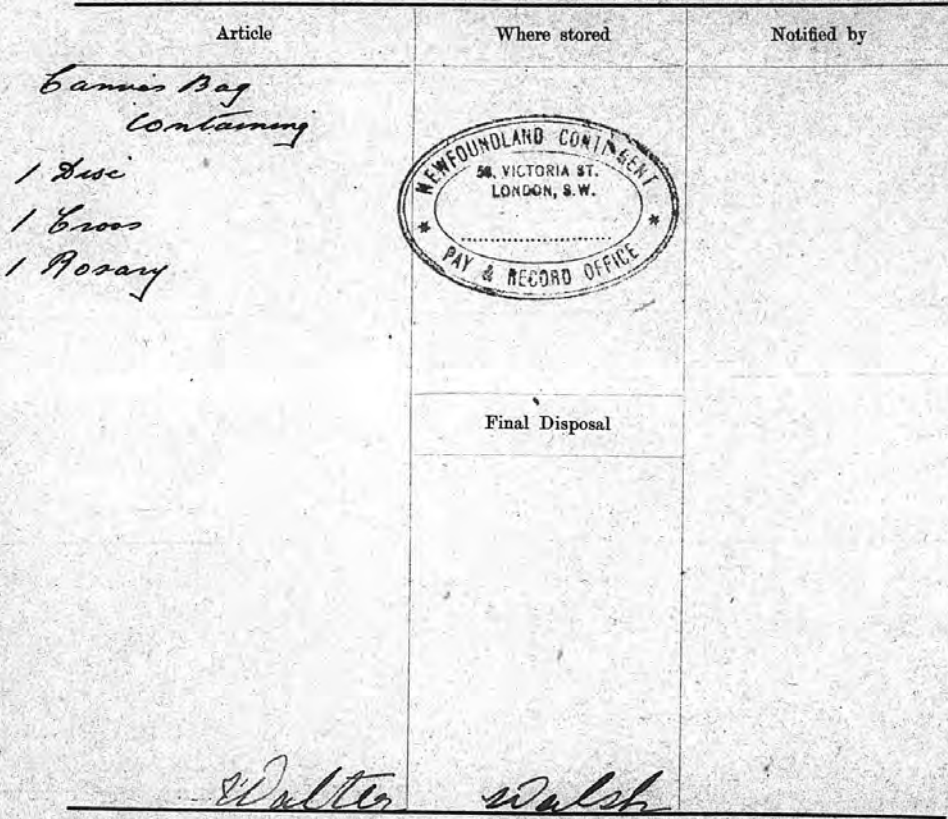 Article
Where stored
Notified by
Canvas Bag
Containing
1 Disc
1 Cross
1 Rosary
NEWFOUNDLAND CONTINGENT
58, VICTORIA ST.
LONDON, S.W.
PAY & RECORD OFFICE
Final Disposal
Walter Walsh